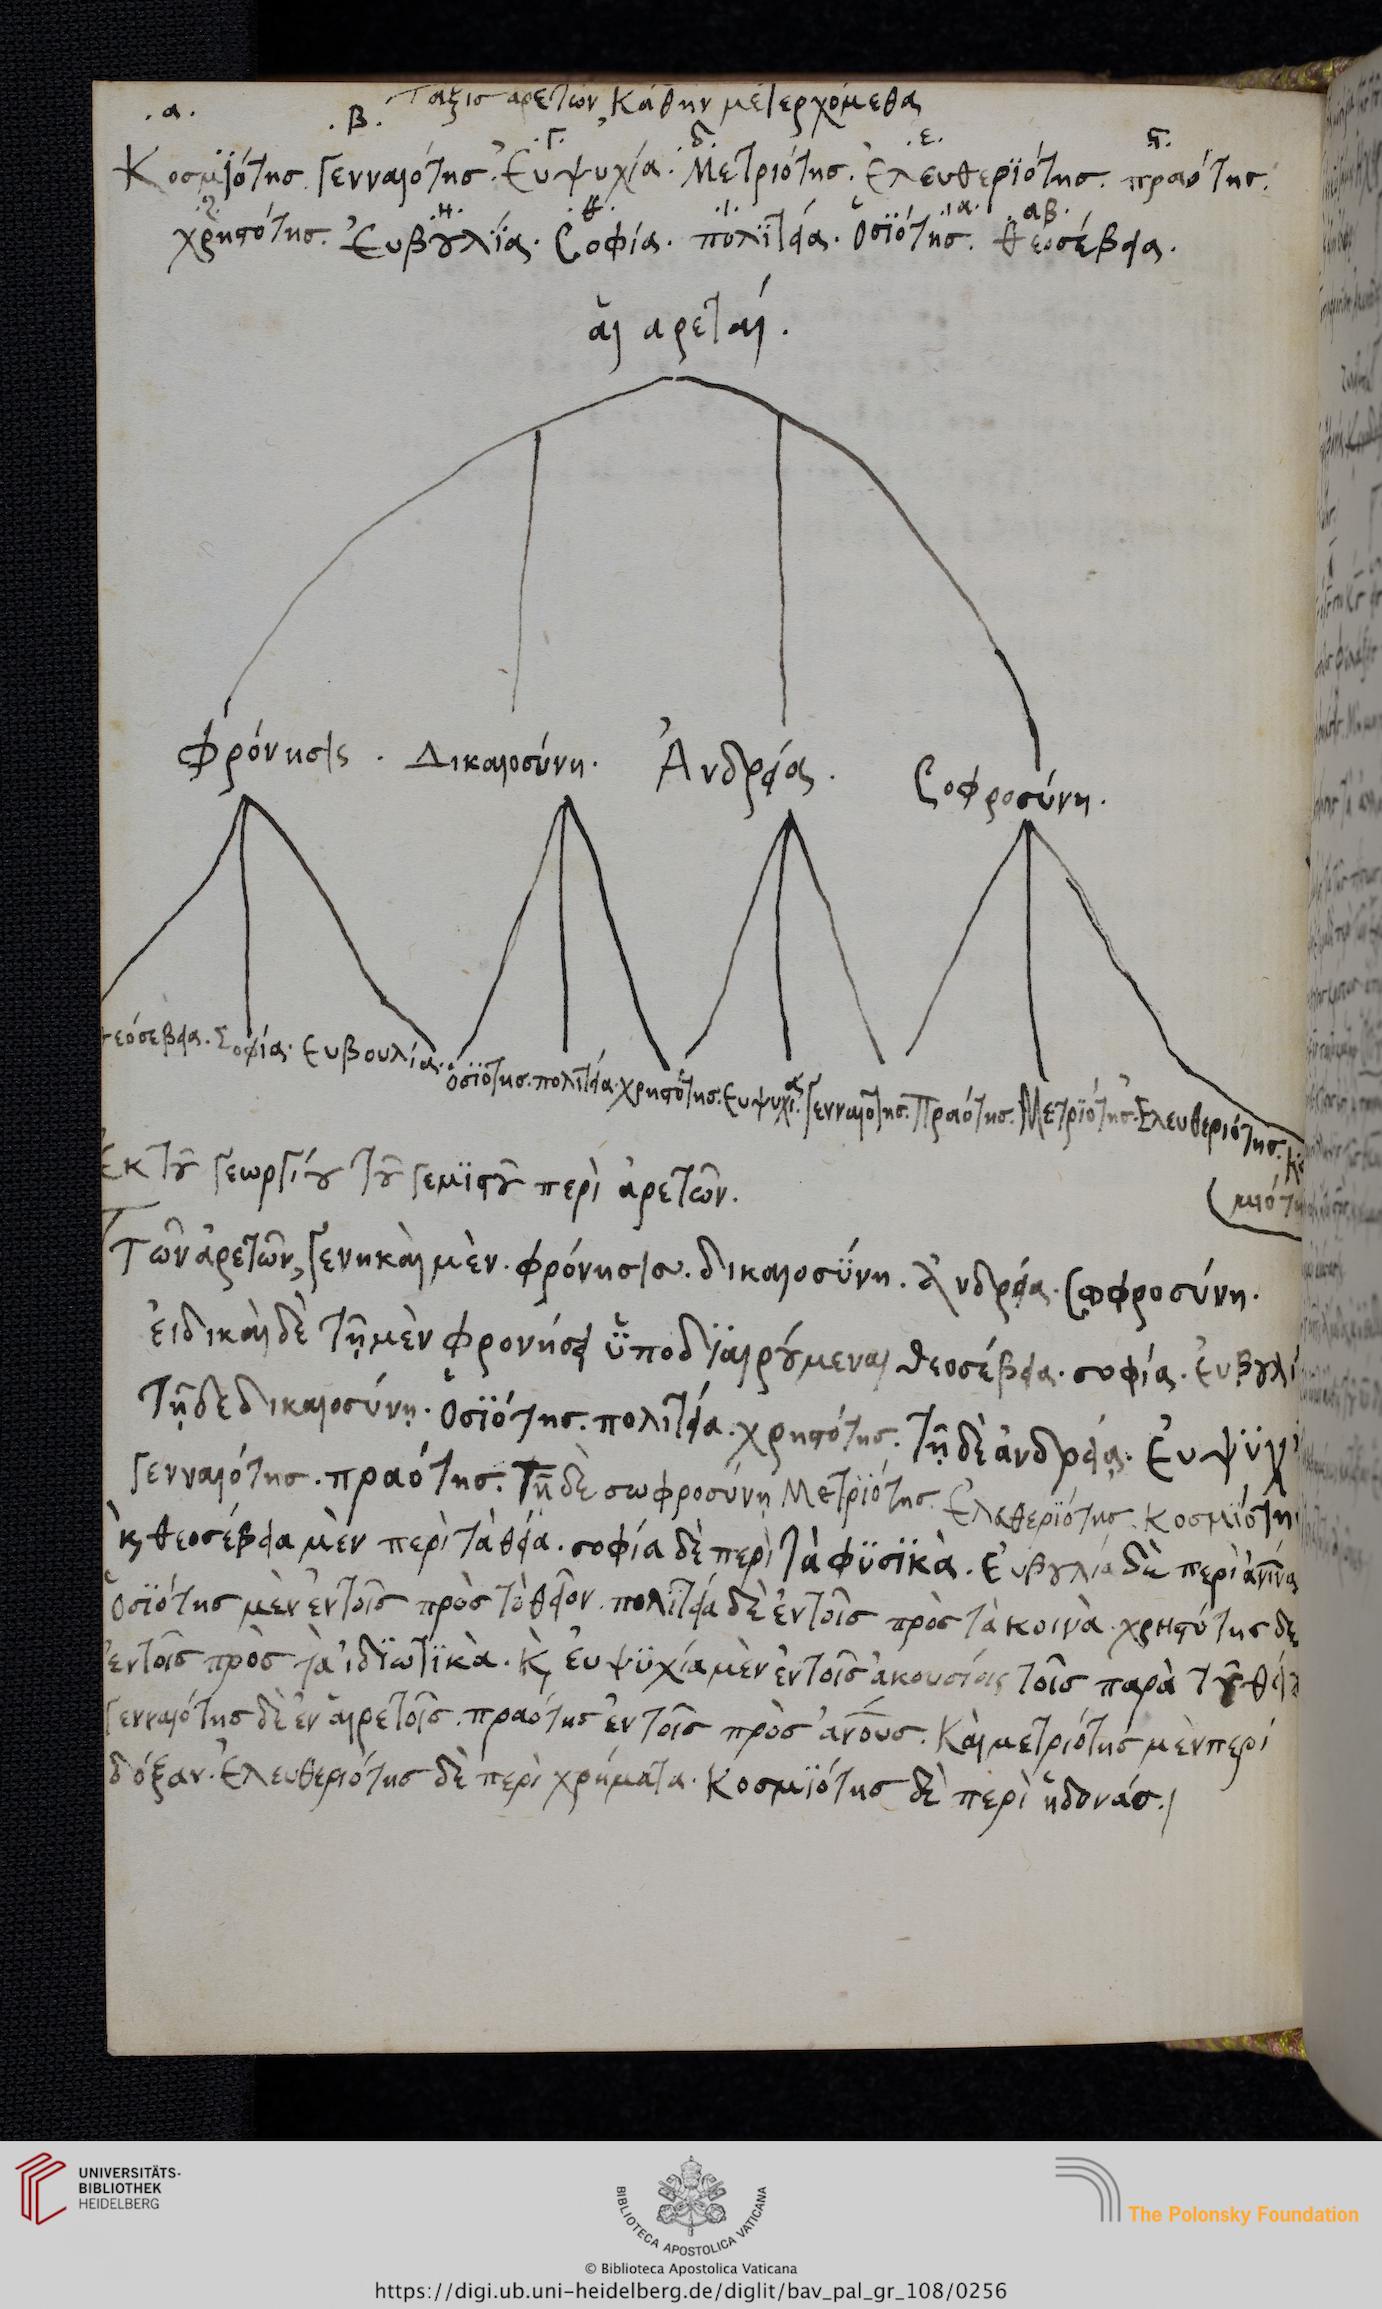 Τάξις αρετῶν, καθην μετερχόμεθα
.α. .β. .Γ. .δ. .ε. .ϛ.
Κοσμϊότης. Γενναιότης. Ἐυψυχία. Μετριότης. Ἐλευθερϊότης. πραότης.
.ζ. .η. .θ. .ι. .ια. .αβ.
χρηστότης. Ἐυβȣλία. Σοφία. πολϊτεία. Ὁσϊότης. θεοσέβεια.
ἁι αρεταί.
Φρόνησις. Δικαιοσύνη. Ἀνδρεία. Σοφροσύνη.
θεόσεβεια. Σοφία. Ευβουλία. Ὁσϊότης. πολιτεία. χρηστότης. Ευψυχία. Γενναιότης. Πραότης. Μετρϊότης. Ἐλευθεριότης. Κο
μιότη
Ἐκ τȣ͂ Γεωργίȣ τȣ͂ Γεμϊστȣ͂ περὶ ἀρετῶν.
Τῶν ἀρετῶν, Γενηκὰι μὲν. φρόνησις. δικαιοσΰνη. ἀνδρεία. Σωφροσύνη.
ἐιδικὰι δὲ τῇ μὲν φρονήσει ὑποδϊαιρȣ́μεναι θεοσέβεια. σοφία. ἐυβȣλί
Τῇ δε δικαιοσύνῃ. Ὁσϊότης. πολιτεία. χρηστότης. τῇ δὲ ἀνδρείᾳ. Ἐυψϋχ
Γενναιότης. πραότης. Τῇ δὲ σωφροσύνῃ Μετρϊότης. Ἐλεθερϊότης. Κοσμϊότη
κ̀ θεοσέβεια μὲν περὶ τὰ θεῖα. σοφία δὲ περὶ τὰ φϋσϊκὰ. Ἐυβȣλία δὲ περὶ ἀνϊνα
Ὁσϊότης μὲν ἐν τοῖς πρὸς τὸ θεῖον. πολϊτεία δὲ ἐν τοῖς πρὸς τὰ κοινὰ. χρηστότης δὲ
ἐν τοῖς πρὸς τὰ ἰδϊωτϊκὰ. κ̀ ἐυψϋχία μὲν ἐν τοῖς ἀκουσίοις τοῖς παρὰ τȣ͂ θεί
Γενναιότης δὲ ἐν ἁιρετοῖς. πραότης ἐν τοῖς πρὸς ἀνους. Κὰι μετριότης μὲν περί
δόξαν. Ἐλευθεριότης δὲ περὶ χρήματα. Κοσμϊότης δὲ περὶ ἡδονάς.
UNIVERSITÄTS-
BIBLIOTHEK
HEIDELBERG
BIBLIOTECA APOSTOLICA VATICANA
The Polonsky Foundation
© Biblioteca Apostolica Vaticana
https://digi.ub.uni-heidelberg.de/diglit/bav_pal_gr_108/0256